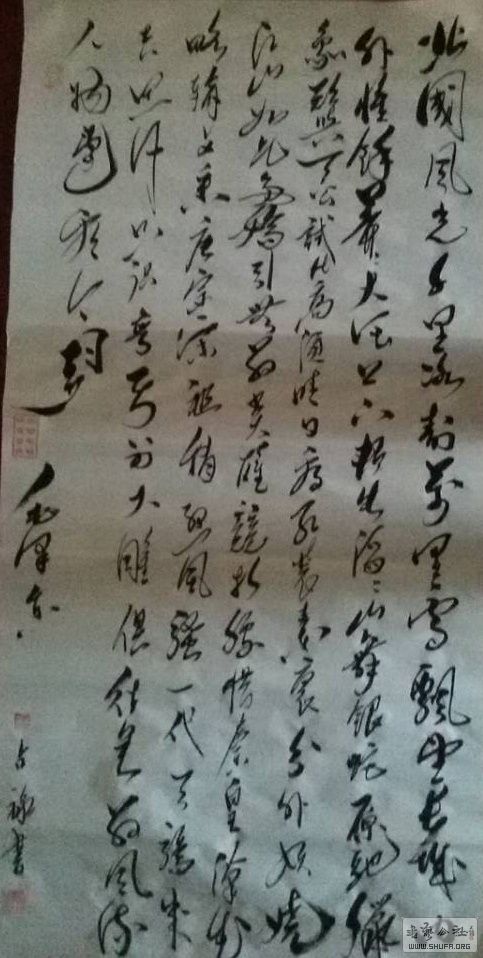 北國風光千里冰封萬里雪飄望長城
外惟餘莽々大河上下頓失滔々山舞銀蛇原馳蠟
象欲與天公試比高須晴日看紅裝素裹分外妖嬈
江山如此多嬌引無數英雄競折腰惜秦皇漢武
略輸文采唐宗宋祖稍遜風騷一代天驕成
吉思汗只識彎弓射大雕俱往矣數風流
人物還看今朝
毛澤東
書
公社
WWW.SHUFA.ORG